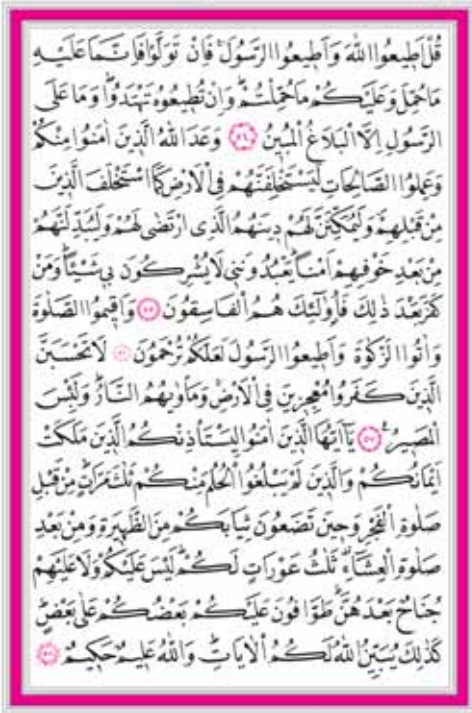 قُلْ اَطٖيعُوا اللّٰهَ وَاَطٖيعُوا الرَّسُولَۚ فَاِنْ تَوَلَّوْا فَاِنَّمَا عَلَيْهِ
مَا حُمِّلَ وَعَلَيْكُمْ مَا حُمِّلْتُمْؕ وَاِنْ تُطٖيعُوهُ تَهْتَدُواؕ وَمَا عَلَى
الرَّسُولِ اِلَّا الْبَلَاغُ الْمُبٖينُ ﴿٥٤﴾ وَعَدَ اللّٰهُ الَّذٖينَ اٰمَنُوا مِنْكُمْ
وَعَمِلُوا الصَّالِحَاتِ لَيَسْتَخْلِفَنَّهُمْ فِى الْاَرْضِ كَمَا اسْتَخْلَفَ الَّذٖينَ
مِنْ قَبْلِهِمْ وَلَيُمَكِّنَنَّ لَهُمْ دٖينَهُمُ الَّذِى ارْتَضٰى لَهُمْ وَلَيُبَدِّلَنَّهُمْ
مِنْ بَعْدِ خَوْفِهِمْ اَمْنًاؕ يَعْبُدُونَنٖى لَا يُشْرِكُونَ بٖى شَيْئًاؕ وَمَنْ
كَفَرَ بَعْدَ ذٰلِكَ فَاُولٰٓئِكَ هُمُ الْفَاسِقُونَ ﴿٥٥﴾ وَاَقٖيمُوا الصَّلٰوةَ
وَاٰتُوا الزَّكٰوةَ وَاَطٖيعُوا الرَّسُولَ لَعَلَّكُمْ تُرْحَمُونَ ﴿٥٦﴾ لَا تَحْسَبَنَّ
الَّذٖينَ كَفَرُوا مُعْجِزٖينَ فِى الْاَرْضِۚ وَمَأْوٰيهُمُ النَّارُؕ وَلَبِئْسَ
الْمَصٖيرُ ﴿٥٧﴾ يَٓا اَيُّهَا الَّذٖينَ اٰمَنُوا لِيَسْتَأْذِنْكُمُ الَّذٖينَ مَلَكَتْ
اَيْمَانُكُمْ وَالَّذٖينَ لَمْ يَبْلُغُوا الْحُلُمَ مِنْكُمْ ثَلٰثَ مَرَّاتٍؕ مِنْ قَبْلِ
صَلٰوةِ الْفَجْرِ وَحٖينَ تَضَعُونَ ثِيَابَكُمْ مِنَ الظَّهٖيرَةِ وَمِنْ بَعْدِ
صَلٰوةِ الْعِشَٓاءِؕ ثَلٰثُ عَوْرَاتٍ لَكُمْؕ لَيْسَ عَلَيْكُمْ وَلَا عَلَيْهِمْ
جُنَاحٌ بَعْدَهُنَّؕ طَوَّافُونَ عَلَيْكُمْ بَعْضُكُمْ عَلٰى بَعْضٍؕ
كَذٰلِكَ يُبَيِّنُ اللّٰهُ لَكُمُ الْاٰيَاتِؕ وَاللّٰهُ عَلٖيمٌ حَكٖيمٌ ﴿٥٨﴾